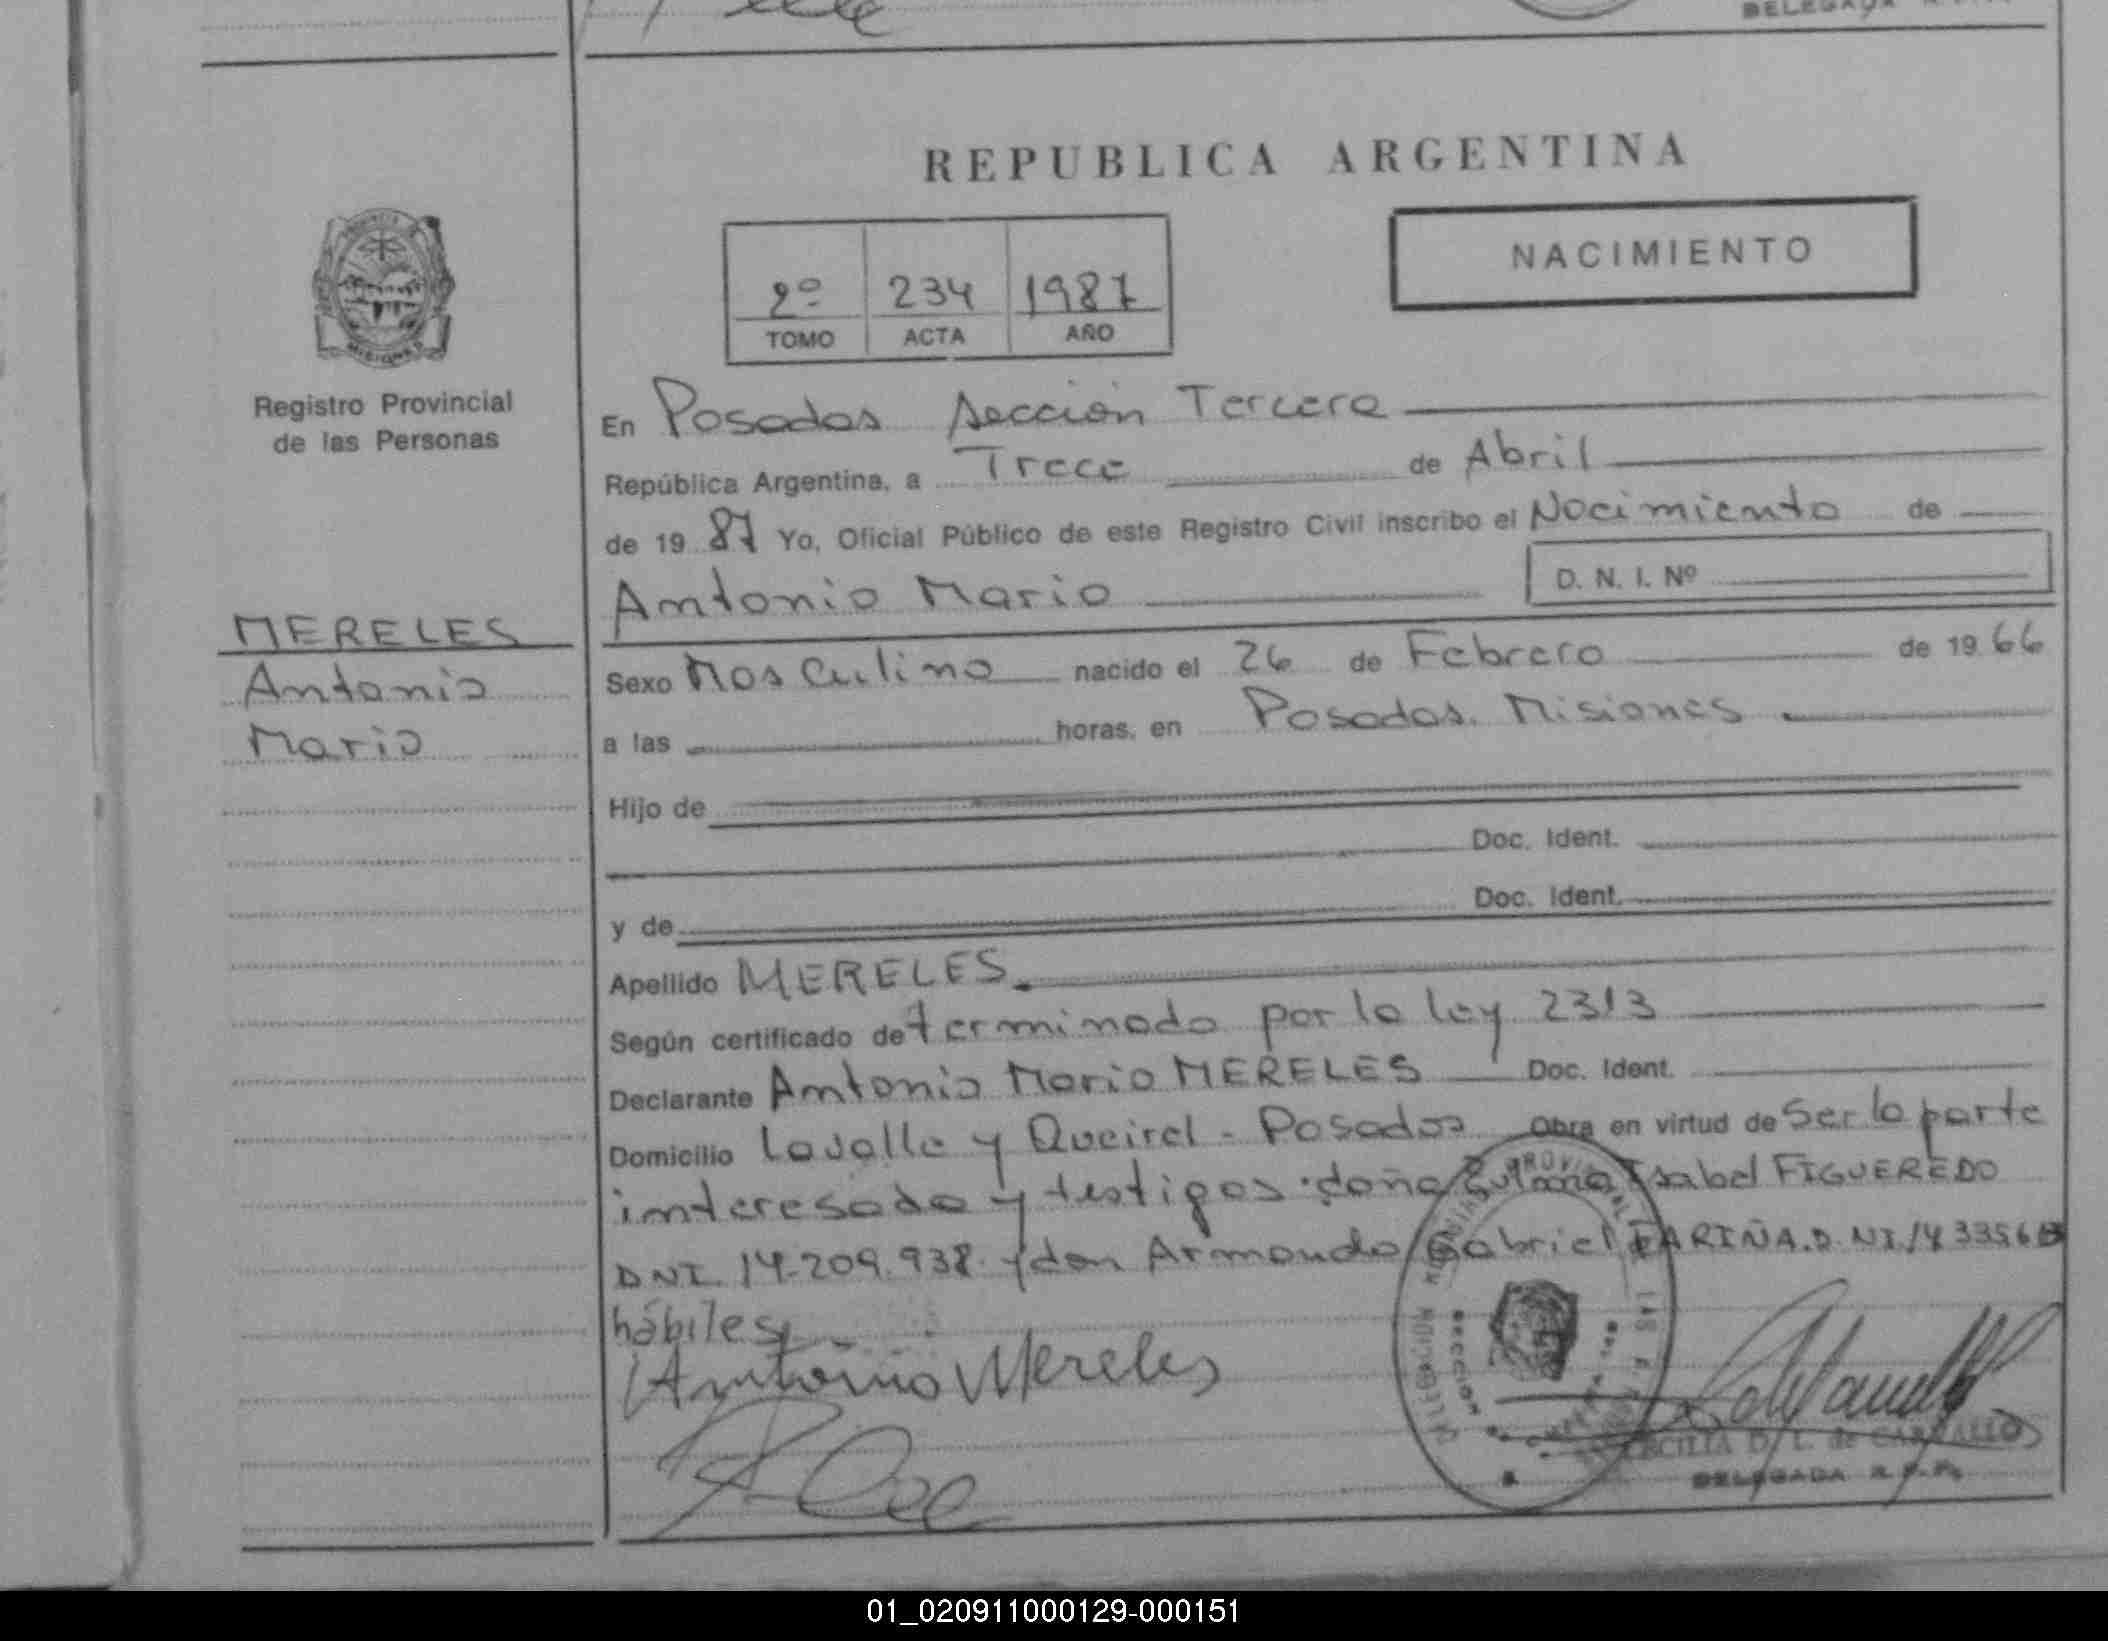 DELEGADA
REPUBLICA ARGENTINA
NACIMIENTO
2º 234 1987
TOMO ACTA AÑO
Registro Provincial
de las Personas
En Posadas Sección Tercera
República Argentina, a Trece de Abril
de 19 87 Yo, Oficial Público de este Registro Civil inscribo el Nacimiento de
Antonio Mario D. N. I. Nº
MERELES
Antonio
Mario
Sexo Masculino nacido el 26 de Febrero de 19 66
a las horas, en Posadas. Misiones
Hijo de
Doc. Ident.
y de Doc. Ident.
Apellido MERELES
Según certificado determinado por la ley 2313
Declarante Antonio Mario MERELES Doc. Ident.
Domicilio Lavalle y Queirel - Posadas Obra en virtud de Ser la parte
interesada y testigos: doña Isabel FIGUEREDO
DNI. 14.209.938. y don Armando Gabriel FARIÑA. D.NI.
hábiles
Antonio Mereles
CECILIA D. L. de CARVALLO
DELEGADA R. P. P.
01_020911000129-000151